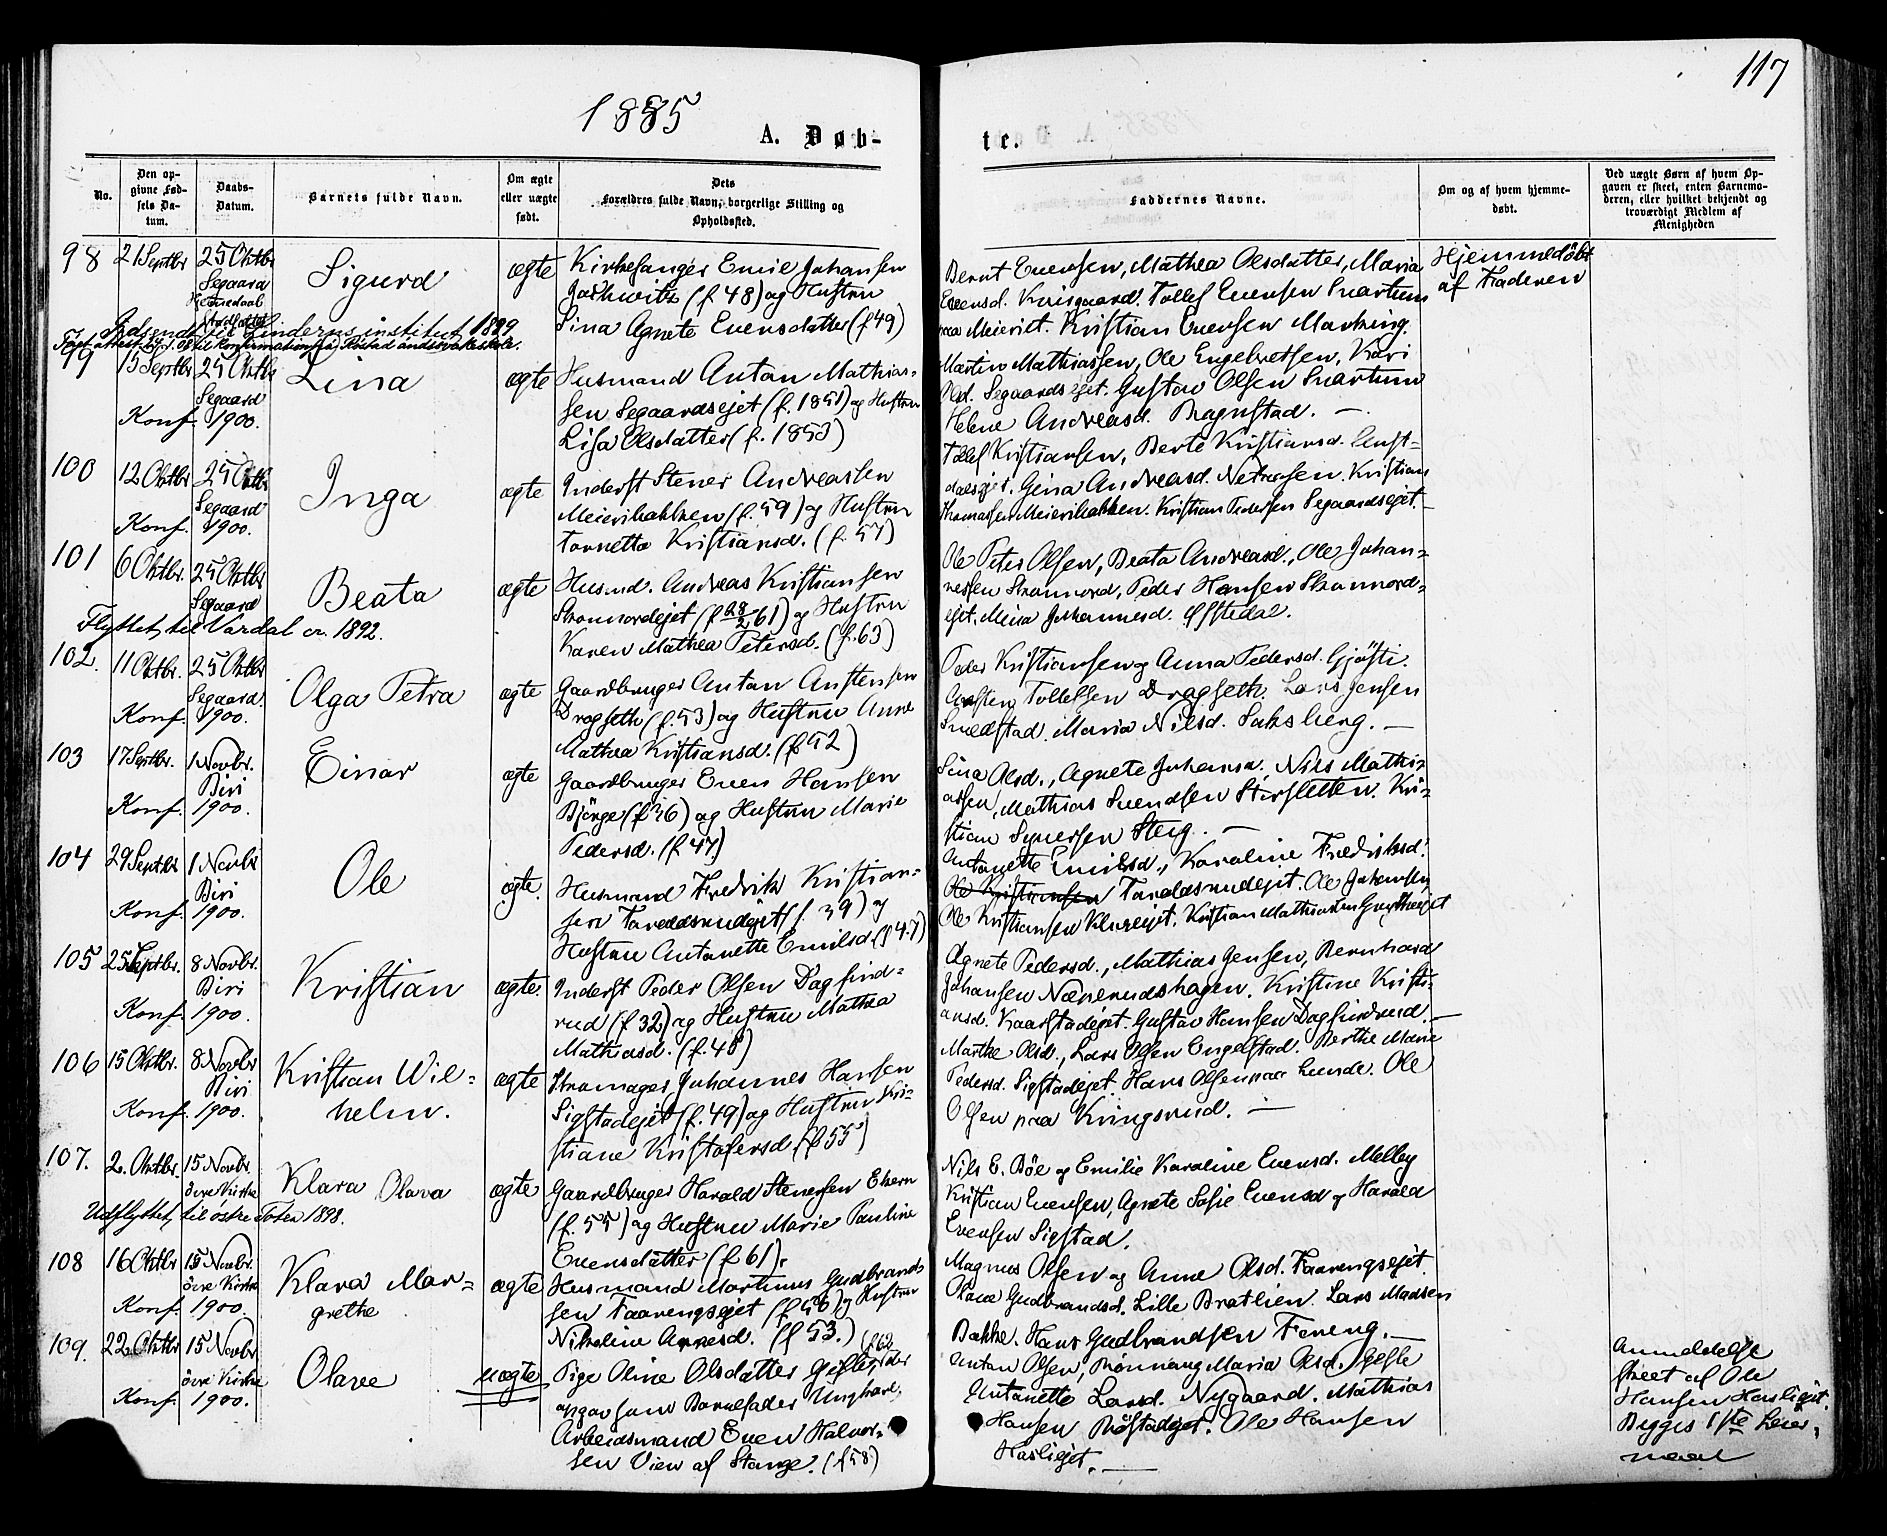 117
1885
A. Døb-
te.
No.
Den op-
givne Fød-
sels Da-
tum.
Daabs-
Datum.
Barnets fulde Navn.
Om ægte
eller uægte
født.
Dets
Forældres fulde Navn, borgerlige Stilling og
Opholdssted.
Faddernes Navne.
Om og af hvem hjemme-
døbt.
Ved uægte Børn af hvem Op-
gaven er skeet, enten Barnemo-
deren, eller hvilket bekjendt og
troværdigt Medlem af
Menigheden
98
21 Septbr
25 Oktbr
Segaard
Hjemmedaab
Stadfæstet
Sigurd
ægte
Kirkesanger Emil Johansen
(f 48) og Hustru
Sina Agnete Evensdatter (f 49)
Bernt Evensen, Mathea Olsdatter, Maria
Evensd. Tollef Evensen Svartum
paa Meieriet. Kristian Evensen
Hjemmedøbt
af Faderen
institut 1889
99
15 Septbr
25 Oktbr
Segaard
Konf. 1900.
Lina
ægte
Husmand Antan Mathias-
sen Segaardsejet (f. 1851) og Hustru
Lisa Olsdatter (f. 1853)
Martin Mathiassen, Ole Engebretsen, Kari
Segaardsejet. Gustav Olsen Svartum
Helene Andreasd. Bragnstad. —
100
12 Oktbr
25 Oktbr
Segaard
Konf. 1900.
Inga
ægte
Inderst Stener Andreassen
Meieribakken (f. 59) og Hustru
Tornetta Kristiansd. (f. 57)
Tollef Kristiansen, Berte Kristiansd. Aust-
dalsejet. Gina Andreasd. Kristian
Thomassen Meieribakken. Kristian Pedersen Segaardsejet. —
101
6 Oktbr.
25 Oktbr
Segaard
Flyttet til Vardal cr. 1892.
Beata
ægte
Husmd. Andreas Kristiansen
Skonnordejet (f 28/2 61) og Hustru
Karen Mathea Petersd. (f. 63)
Ole Peter Olsen, Beata Andreasd., Ole Johan-
nessen Skonnord, Peder Hansen Skonnord-
ejet. Mina Johannesd. Øfstedal.
102.
11 Oktbr.
25 Oktbr
Segaard.
Konf. 1900.
Olga Petra
ægte
Gaardbruger Antan Anstensen
Dragseth (f. 53) og Hustru Anne
Mathea Kristiansd. (f 52)
Peder Kristiansen og Anna Pedersd. Gjøsti.
Tollefsen Dragseth. Lars Jensen
Snedstad. Maria Nilsd. Saksberg. —
103
17 Septbr.
1 Novbr.
Biri
Konf. 1900.
Einar
ægte
Gaardbruger Even Hansen
Bjørge (f 36) og Hustru Marie
Pedersd. (f 47.)
Sina Olsd., Agnete Johansd. Nils Mathi-
assen, Mathias Svendsen Kri-
stian Syversen Steig. —
104
29 Septbr
1 Novbr
Biri
Konf. 1900.
Ole
ægte.
Husmand Fredrik Kristian-
sen (f. 39) og
Hustru Antonette Emilsd. (f 47)
Antonette Emilsd., Karoline Fredriksd.
Ole Kristiansen Ole Johansen,
Ole Kristiansen Kristian Mathiassen
105
25 Septbr.
8 Novbr.
Biri
Konf. 1900.
Kristian
ægte.
Inderst Peder Olsen Dagfind-
rud (f 32) og Hustru Mathea
Mathiasd. (f. 48)
Agnete Pedersd., Mathias Jensen, Bernhard
Johansen Nærerudshagen. Kristine Kristi-
ansd. Kaarstadejet. Gustav Hansen Dagfindrud. —
106
15 Oktbr.
8 Novbr
Biri
Konf. 1900.
Kristian Wil-
helm.
ægte
Skomager Johannes Hansen
Sigstadejet (f. 49) og Hustru Kri-
stiane Kristofersd. (f 55)
Marthe Olsd., Lars Olsen Engelstad. Berthe Marie
Pedersd. Sigstadejet. Hans Olsen paa Lunde. Ole
Olsen paa Kringsrud. —
107.
2. Oktbr.
15 Novbr.
övre Kirke
Udflyttet til östre Toten 1898.
Klara Olava
ægte
Gaardbruger Harald Stenersen Ekern
(f. 55) og Hustru Marie Pauline
Evensdatter (f 61).
Nils E. Böe og Emilie Karoline Evensd. Melby
Kristian Evensen, Agnete Sofie Evensd og Harald
Evensen Sigstad.
108
16 Oktbr
15 Novbr
övre Kirke
Konf. 1900.
Klara Mar-
grethe
ægte
Husmand Martinus Gudbrand-
sen Faarengsejet (f. 56) og Hustru
Nikoline Arnesd. (f 53.)
Magnus Olsen og Anne Olsd. Faarengsejet.
Olava Gudbrandsd. Lille Bratlien. Lars Madsen
Bakke. Hans Gudbrandsen —
109.
22 Oktbr
15 Novbr
övre Kirke
Konf. 1900.
Olava
uægte
Pige Oline Olsdatter Gesle, (f 62) der
opgav som Barnefader Ungkarl,
Arbeidsmand Even Halvor-
sen Vien af Stange. (f 58)
Antan Olsen, Maria Olsd. Gesle
Antonette Larsd. Nygaard. Mathias
Hansen Ole Hansen
Hasliejet. —
Anmeldelse
skeet af Ole
Hansen Hasliejet.
Begges 1ste Leier-
maal